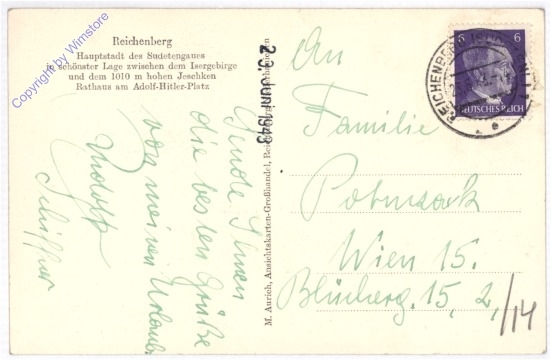 Copyright by Winstore
Reichenberg
Hauptstadt des Sudetengaues
in schönster Lage zwischen dem Isergebirge
und dem 1010 m hohen Jeschken
Rathaus am Adolf-Hitler-Platz
Sende Ihnen
die besten Grüße
von meinen Urlaub
Rudolf
M. Aurich, Ansichtskarten-Großhandel
JUNI 1943
6 6
DEUTSCHES REICH
REICHENBERG
e
An
Familie
Wien 15.
15, 2,/14